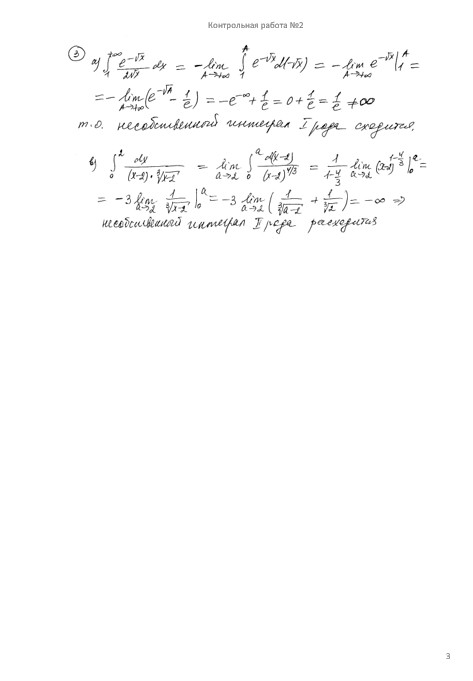 Контрольная работа №2
③ a) ∫₁^{+∞} e^{-√x}/(2√x) dx = -lim_{A→+∞} ∫₁^A e^{-√x} d(-√x) = -lim_{A→+∞} e^{-√x}|₁^A =
= -lim_{A→+∞} (e^{-√A} - 1/e) = -e^{-∞} + 1/e = 0 + 1/e = 1/e ≠ ∞
т.о. несобственный интеграл I рода сходится.
в) ∫₀² dx/((x-2)·∛(x-2)) = lim_{a→2} ∫₀^a d(x-2)/(x-2)^{4/3} = 1/(1-4/3) lim_{a→2} (x-2)^{1-4/3}|₀^a =
= -3 lim_{a→2} 1/∛(x-2) |₀^a = -3 lim_{a→2} (1/∛(a-2) + 1/∛2) = -∞ ⇒
несобственный интеграл II рода расходится
3